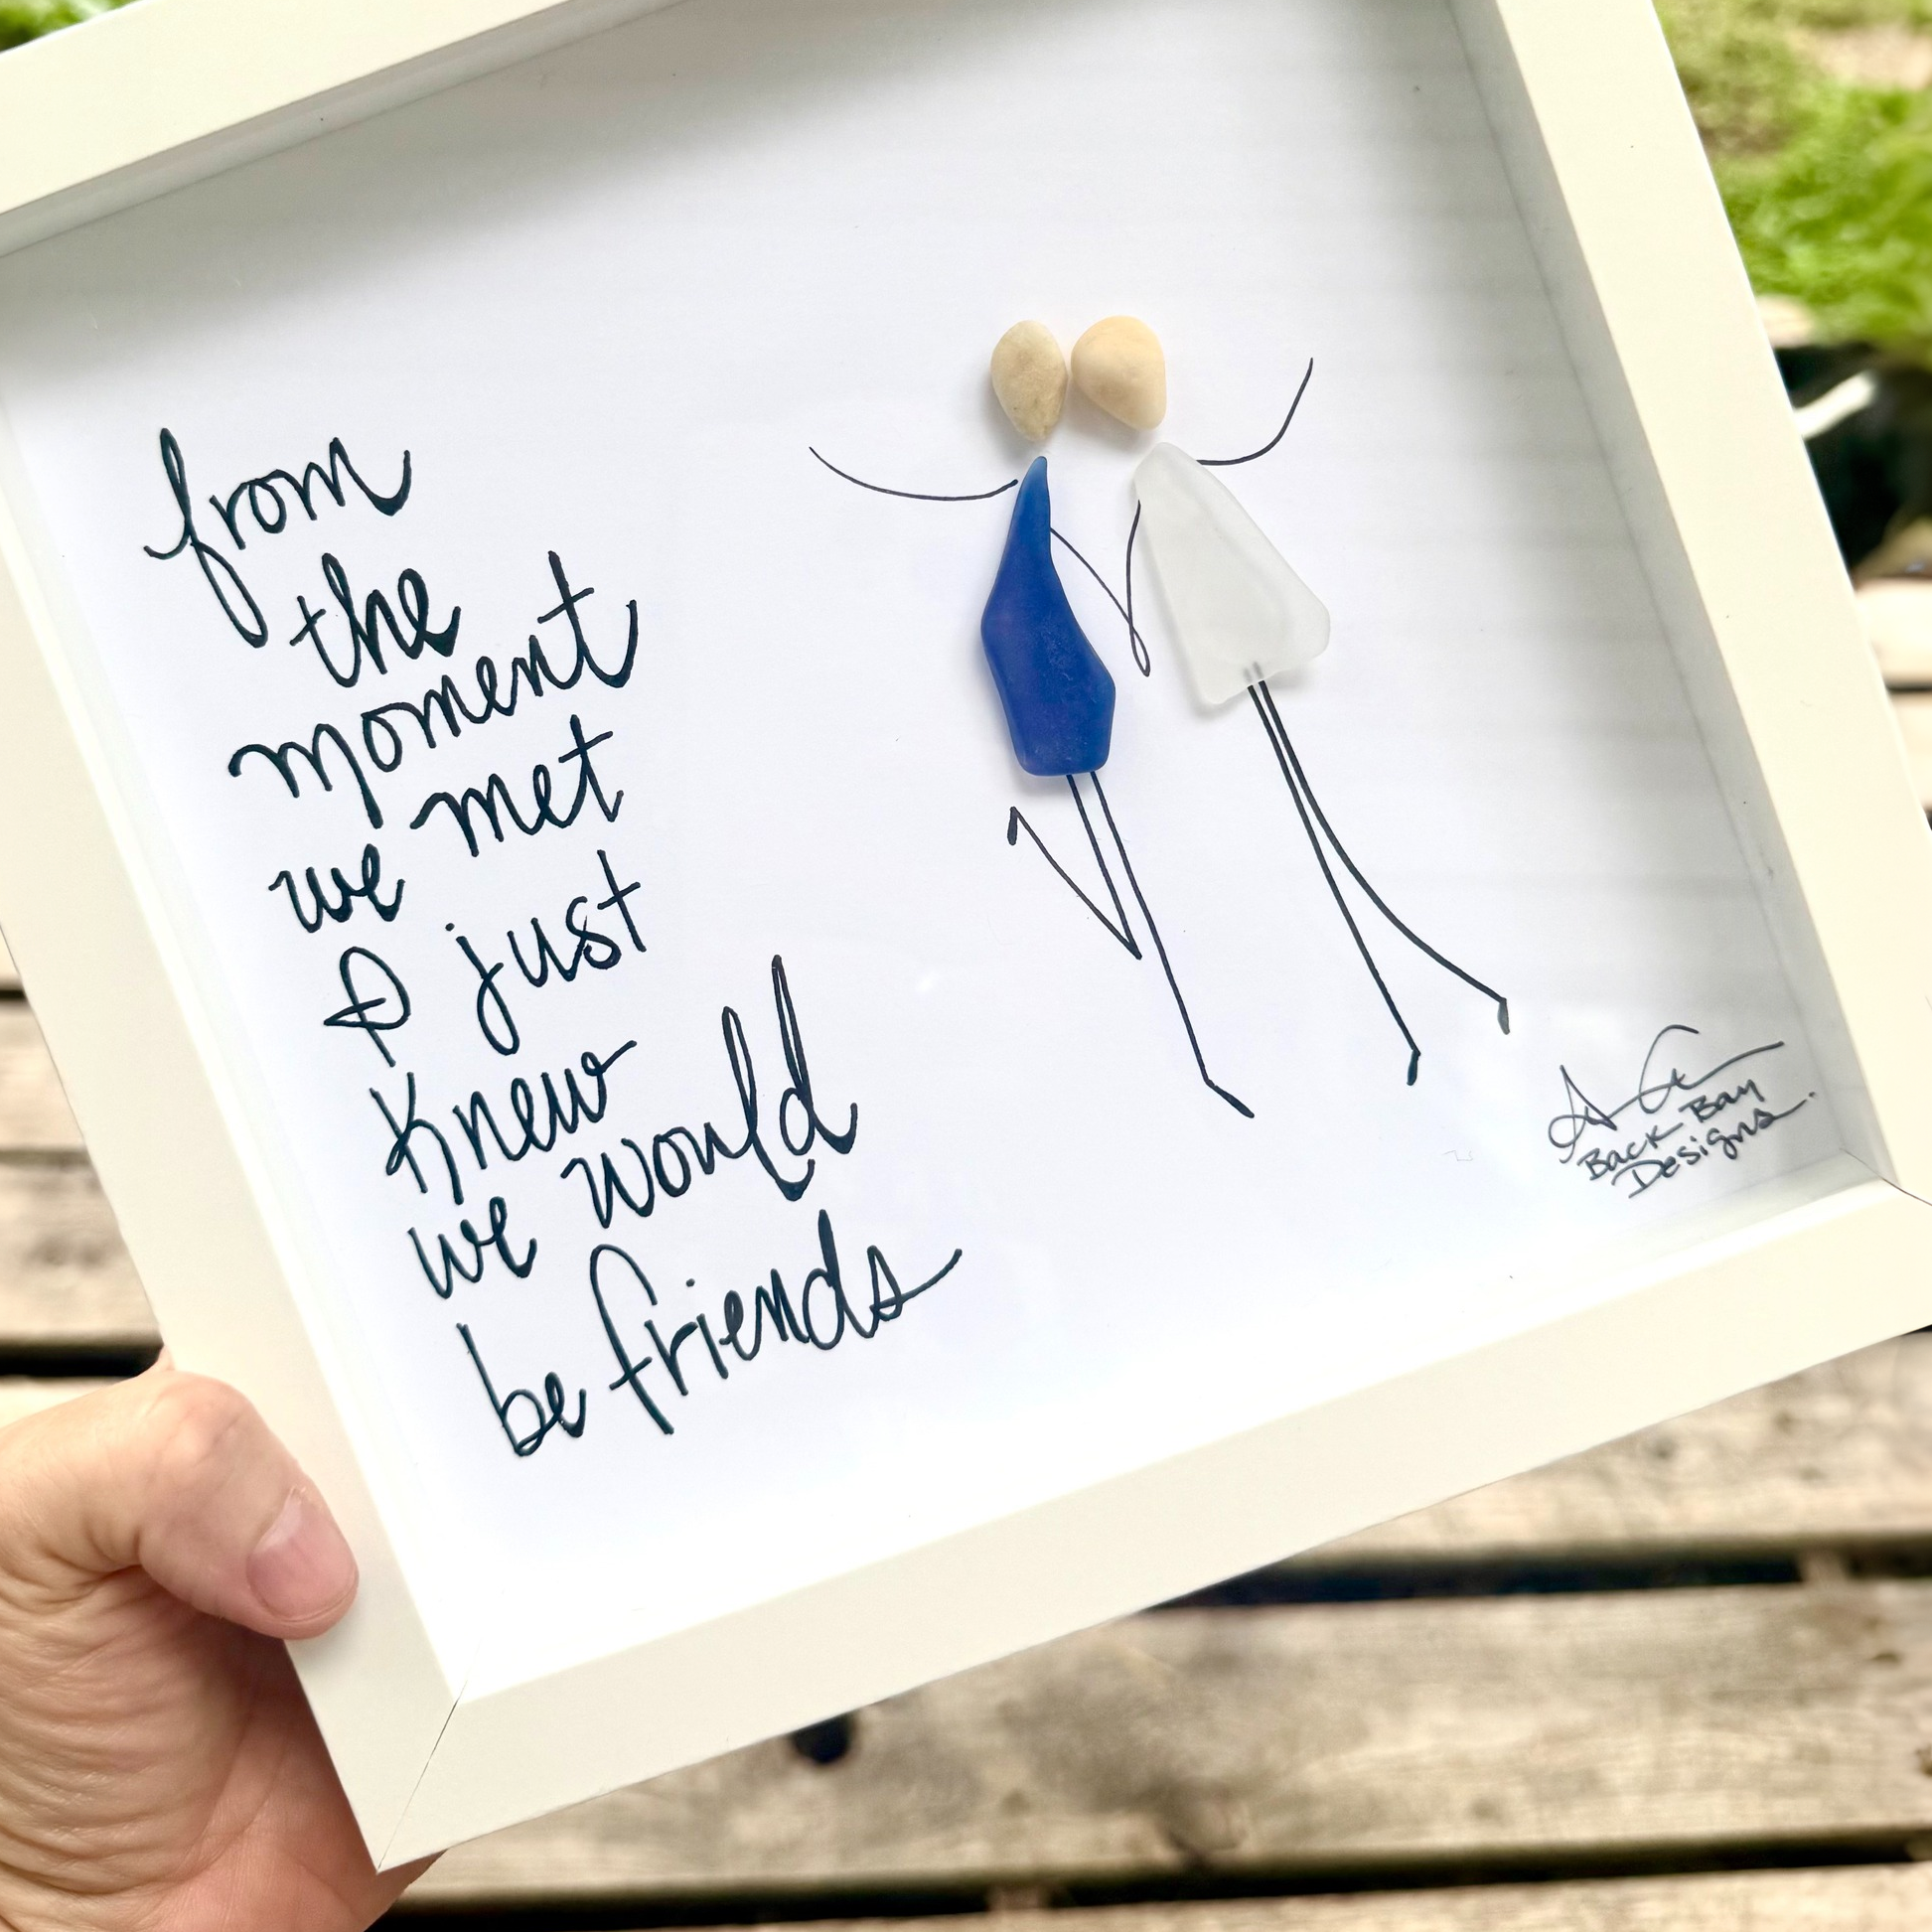 from
the
moment
we met
I just
Knew
we would
be friends
Back Bay
Designs